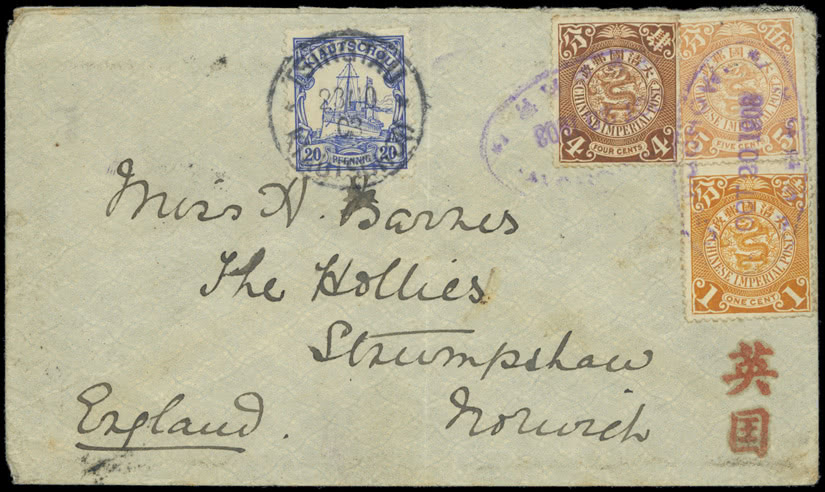 KIAUTSCHOU
20 PFENNIG 20
分 肆
大清國郵政
CHINESE IMPERIAL POST
4 FOUR CENTS 4
分 伍
大清國郵政
CHINESE IMPERIAL POST
5 FIVE CENTS 5
OCT 20 1903
分
大清國郵政
CHINESE IMPERIAL POST
1 ONE CENT 1
Miss H. Barnes
The Hollies
Strumpshaw
Norwich
England.
英
国